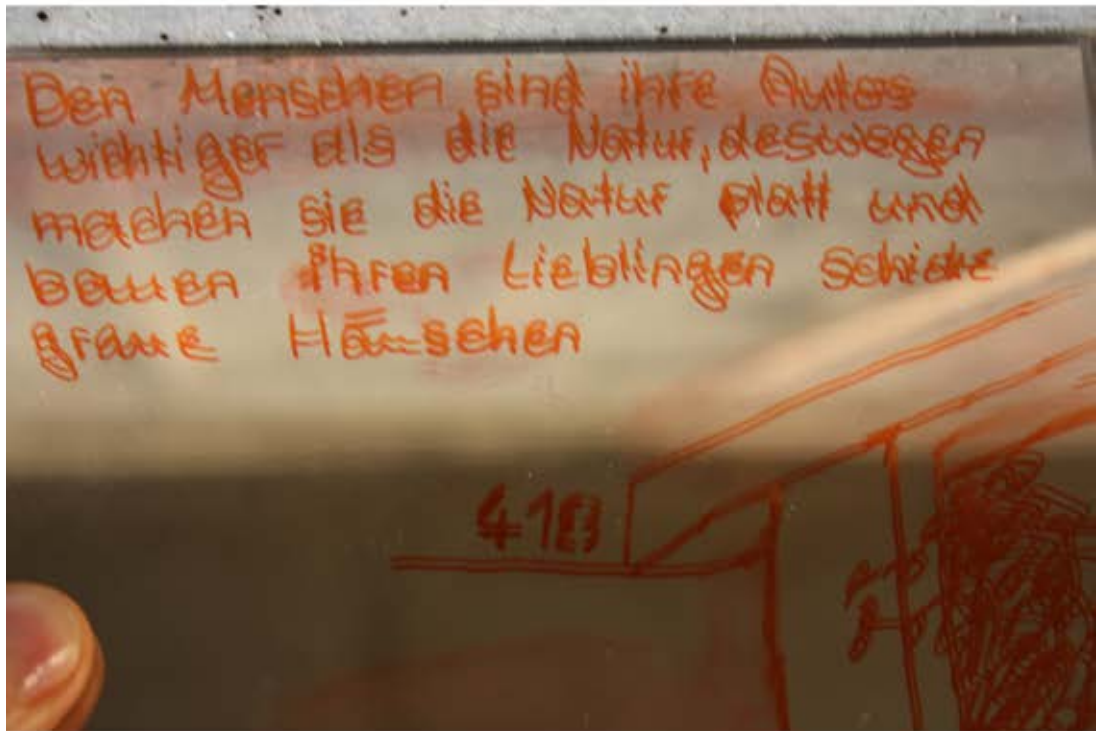 Den Menschen sind ihre Autos
wichtiger als die Natur, deswegen
machen sie die Natur platt und
bauen ihren Lieblingen schicke
graue Häuschen